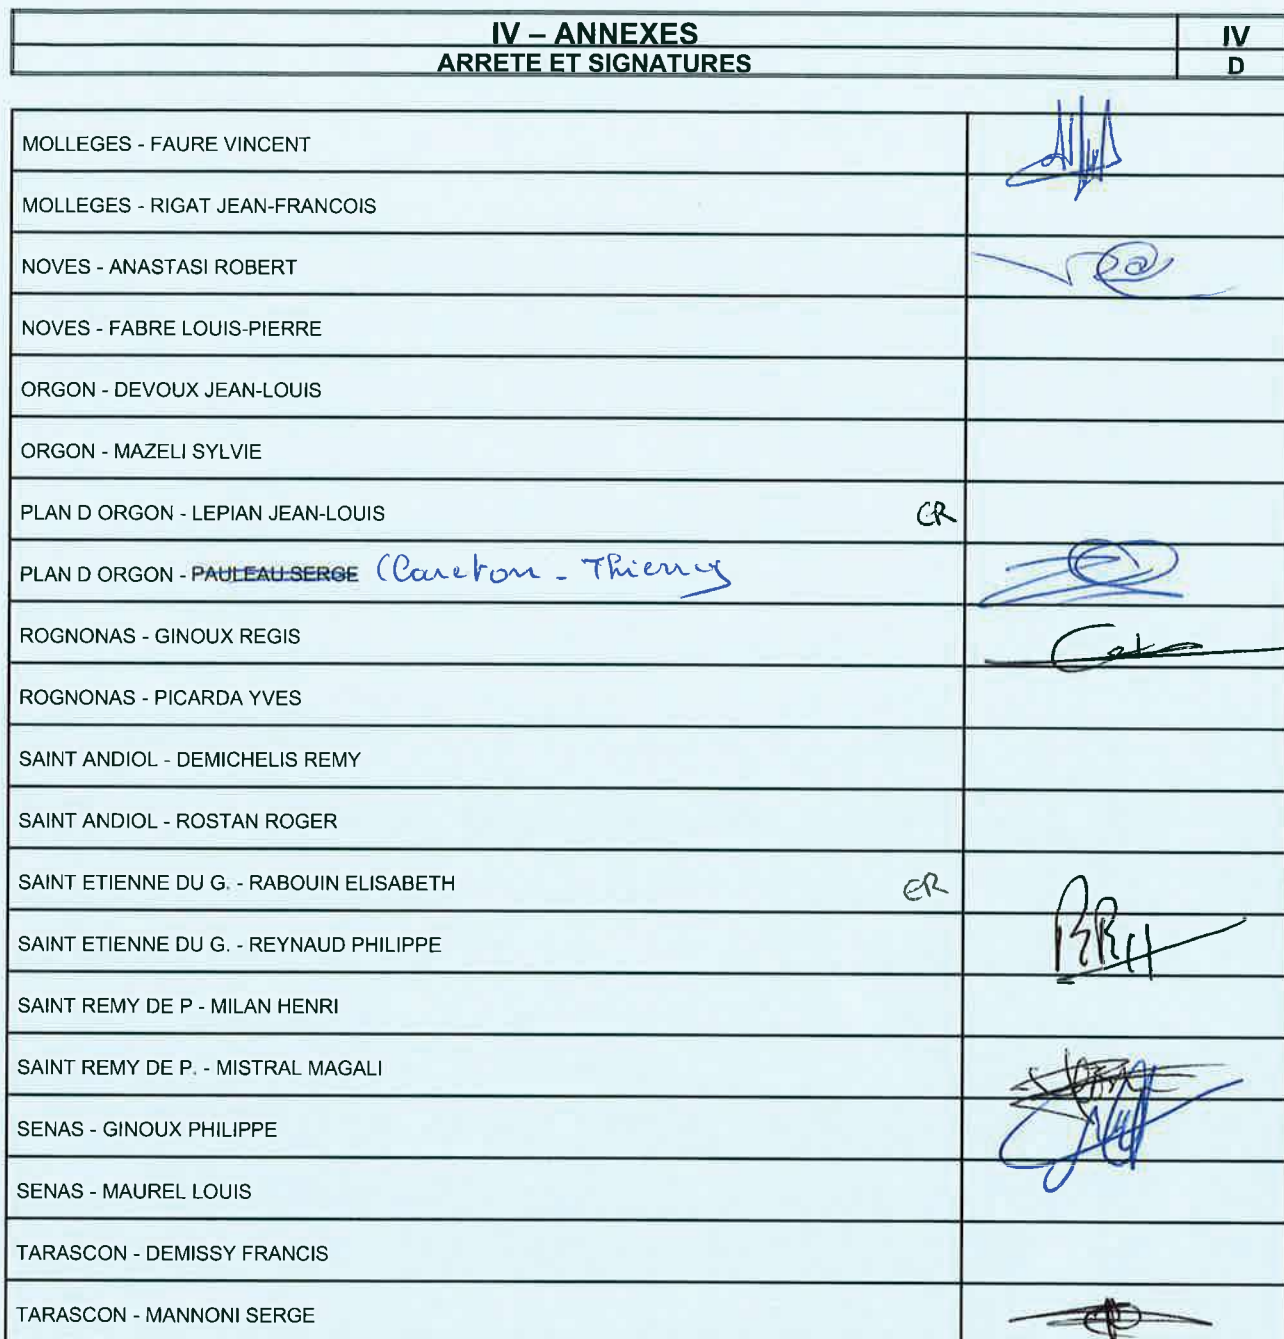 IV – ANNEXES
IV
ARRETE ET SIGNATURES
D
MOLLEGES - FAURE VINCENT
MOLLEGES - RIGAT JEAN-FRANCOIS
NOVES - ANASTASI ROBERT
NOVES - FABRE LOUIS-PIERRE
ORGON - DEVOUX JEAN-LOUIS
ORGON - MAZELI SYLVIE
PLAN D ORGON - LEPIAN JEAN-LOUIS
PLAN D ORGON - PAULEAU SERGE Thierry
ROGNONAS - GINOUX REGIS
ROGNONAS - PICARDA YVES
SAINT ANDIOL - DEMICHELIS REMY
SAINT ANDIOL - ROSTAN ROGER
SAINT ETIENNE DU G. - RABOUIN ELISABETH ER
SAINT ETIENNE DU G. - REYNAUD PHILIPPE
SAINT REMY DE P - MILAN HENRI
SAINT REMY DE P. - MISTRAL MAGALI
SENAS - GINOUX PHILIPPE
SENAS - MAUREL LOUIS
TARASCON - DEMISSY FRANCIS
TARASCON - MANNONI SERGE